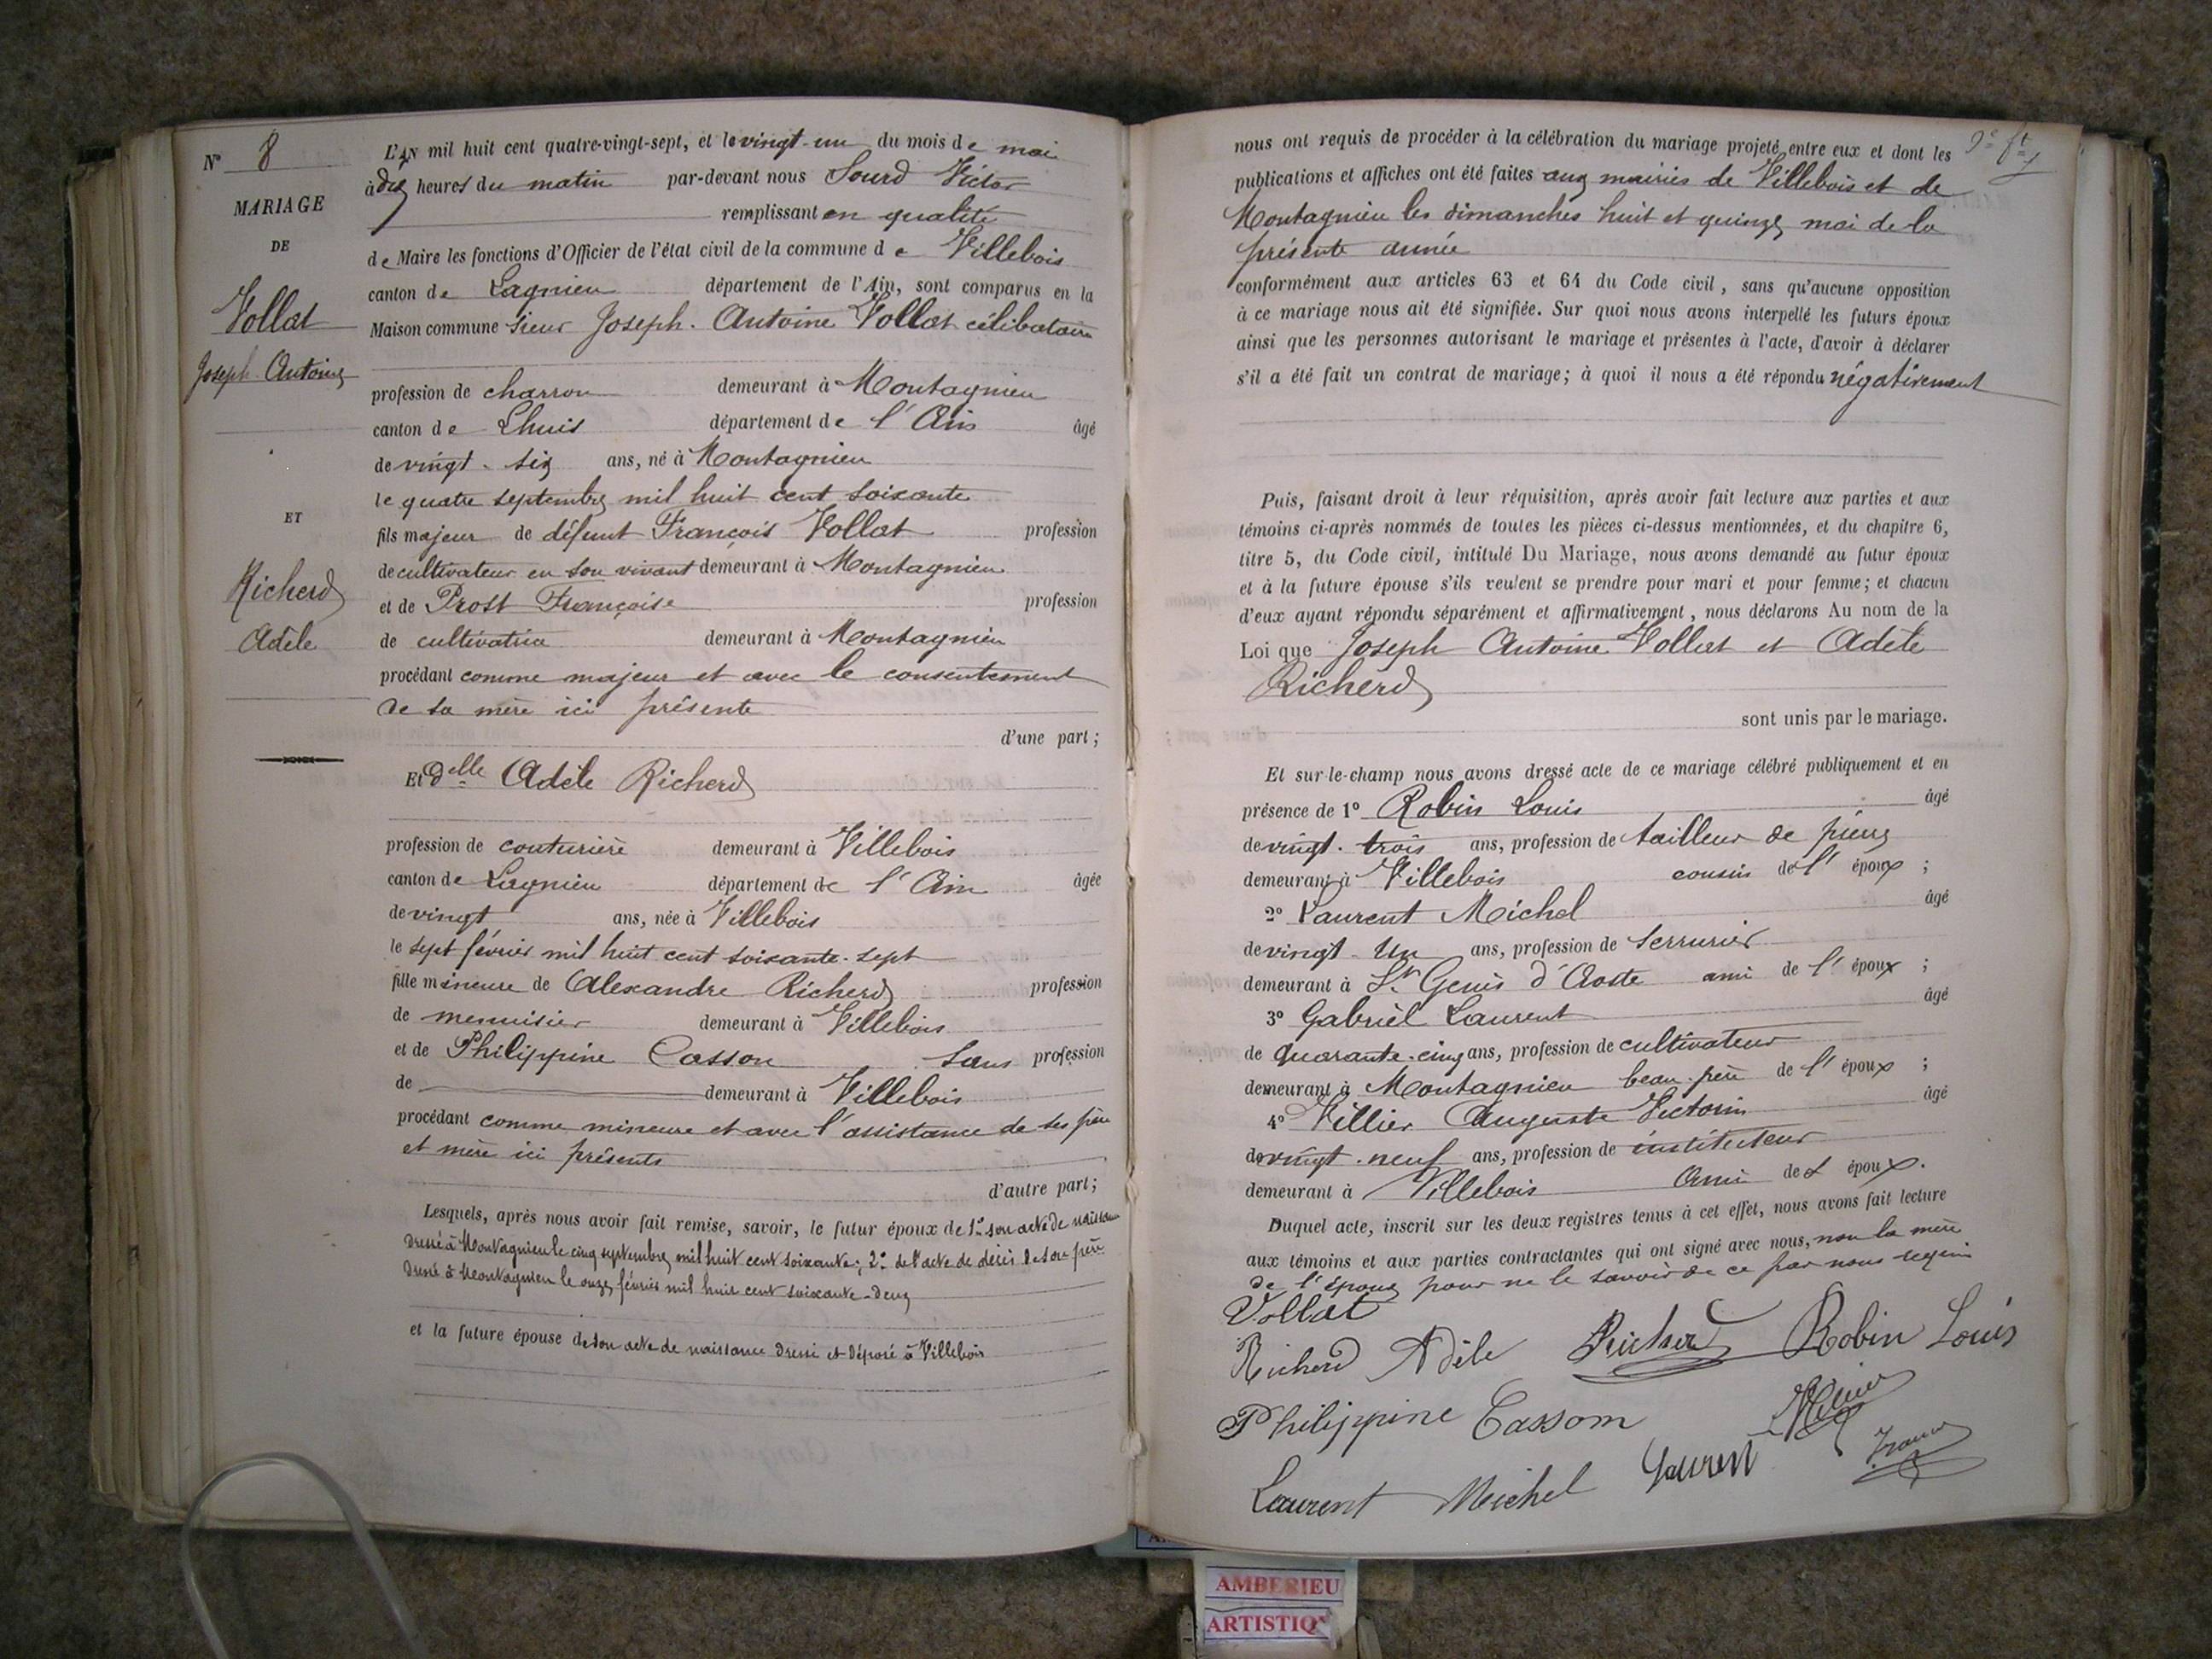 N° 8
MARIAGE
DE
Vollat
Joseph Antoine
ET
Richerd
Adèle
L'AN mil huit cent quatre-vingt-sept, et le vingt-un du mois de mai
à dix heures du matin par-devant nous Sourd Victor
remplissant en qualité
de Maire les fonctions d'Officier de l'état civil de la commune de Villebois
canton de Lagnieu département de l'Ain, sont comparus en la
Maison commune sieur Joseph-Antoine Vollat célibataire
profession de charron demeurant à Montagnieu
canton de Lhuis département de l'Ain âgé
de vingt-six ans, né à Montagnieu
le quatre septembre mil huit cent soixante
fils majeur de défunt François Vollat profession
de cultivateur en son vivant demeurant à Montagnieu
et de Prost Françoise profession
de cultivatrice demeurant à Montagnieu
procédant comme majeur et avec le consentement
de sa mère ici présente
d'une part;
Et delle Adèle Richerd
profession de couturière demeurant à Villebois
canton de Lagnieu département de l'Ain âgée
de vingt ans, née à Villebois
le sept février mil huit cent soixante-sept
fille mineure de Alexandre Richerd profession
de menuisier demeurant à Villebois
et de Philippine Casson sans profession
de demeurant à Villebois
procédant comme mineure et avec l'assistance de ses père
et mère ici présents
d'autre part;
Lesquels, après nous avoir fait remise, savoir, le futur époux de 1° son acte de naissance
dressé à Montagnieu le cinq septembre mil huit cent soixante; 2° de l'acte de décès de son père
dressé à Montagnieu le onze février mil huit cent soixante-deux
et la future épouse de son acte de naissance dressé et déposé à Villebois
nous ont requis de procéder à la célébration du mariage projeté entre eux et dont les
publications et affiches ont été faites aux mairies de Villebois et de
Montagnieu les dimanches huit et quinze mai de la
présente année
conformément aux articles 63 et 64 du Code civil, sans qu'aucune opposition
à ce mariage nous ait été signifiée. Sur quoi nous avons interpellé les futurs époux
ainsi que les personnes autorisant le mariage et présentes à l'acte, d'avoir à déclarer
s'il a été fait un contrat de mariage; à quoi il nous a été répondu négativement
Puis, faisant droit à leur réquisition, après avoir fait lecture aux parties et aux
témoins ci-après nommés de toutes les pièces ci-dessus mentionnées, et du chapitre 6,
titre 5, du Code civil, intitulé Du Mariage, nous avons demandé au futur époux
et à la future épouse s'ils veulent se prendre pour mari et pour femme; et chacun
d'eux ayant répondu séparément et affirmativement, nous déclarons Au nom de la
Loi que Joseph Antoine Vollat et Adèle
Richerd
sont unis par le mariage.
Et sur-le-champ nous avons dressé acte de ce mariage célébré publiquement et en
présence de 1° Robin Louis âgé
de vingt-trois ans, profession de tailleur de pierre
demeurant à Villebois cousin de l'époux;
2° Laurent Michel âgé
de vingt-Un ans, profession de Serrurier
demeurant à St Genis d'Aoste ami de l'époux;
3° Gabriel Laurent âgé
de quarante-cinq ans, profession de cultivateur
demeurant à Montagnieu beau-père de l'époux;
4° Villier Auguste Victorin âgé
de vingt-neuf ans, profession de instituteur
demeurant à Villebois Ami de l'époux.
Duquel acte, inscrit sur les deux registres tenus à cet effet, nous avons fait lecture
aux témoins et aux parties contractantes qui ont signé avec nous, non la mère
de l'époux pour ne le savoir de ce par nous requis
Vollat
Richerd Adèle Richerd Robin Louis
Philippine Casson
Laurent Michel Laurent
AMBERIEU
ARTISTIQ